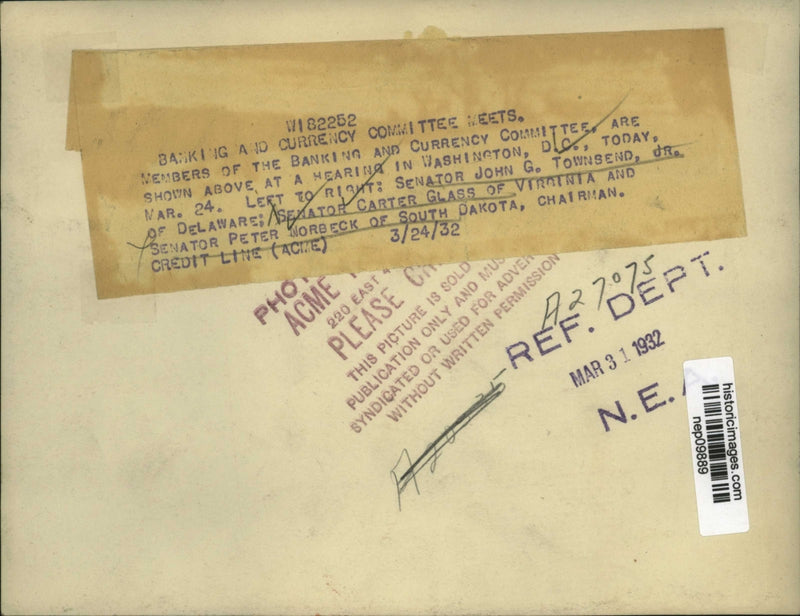 W182252
BANKING AND CURRENCY COMMITTEE MEETS.
MEMBERS OF THE BANKING AND CURRENCY COMMITTEE, ARE
SHOWN ABOVE AT A HEARING IN WASHINGTON, D.C., TODAY,
MAR. 24. LEFT TO RIGHT: SENATOR JOHN G. TOWNSEND, JR.
OF DELAWARE; SENATOR CARTER GLASS OF VIRGINIA AND
SENATOR PETER NORBECK OF SOUTH DAKOTA, CHAIRMAN.
CREDIT LINE (ACME) 3/24/32
ACME
220 EAST 4
PLEASE
THIS PICTURE IS SOLD
PUBLICATION ONLY AND
SYNDICATED OR USED FOR
WITHOUT WRITTEN PERMISSION
A27075
REF. DEPT.
MAR 31 1932
N.E.A
historicimages.com
nep09889